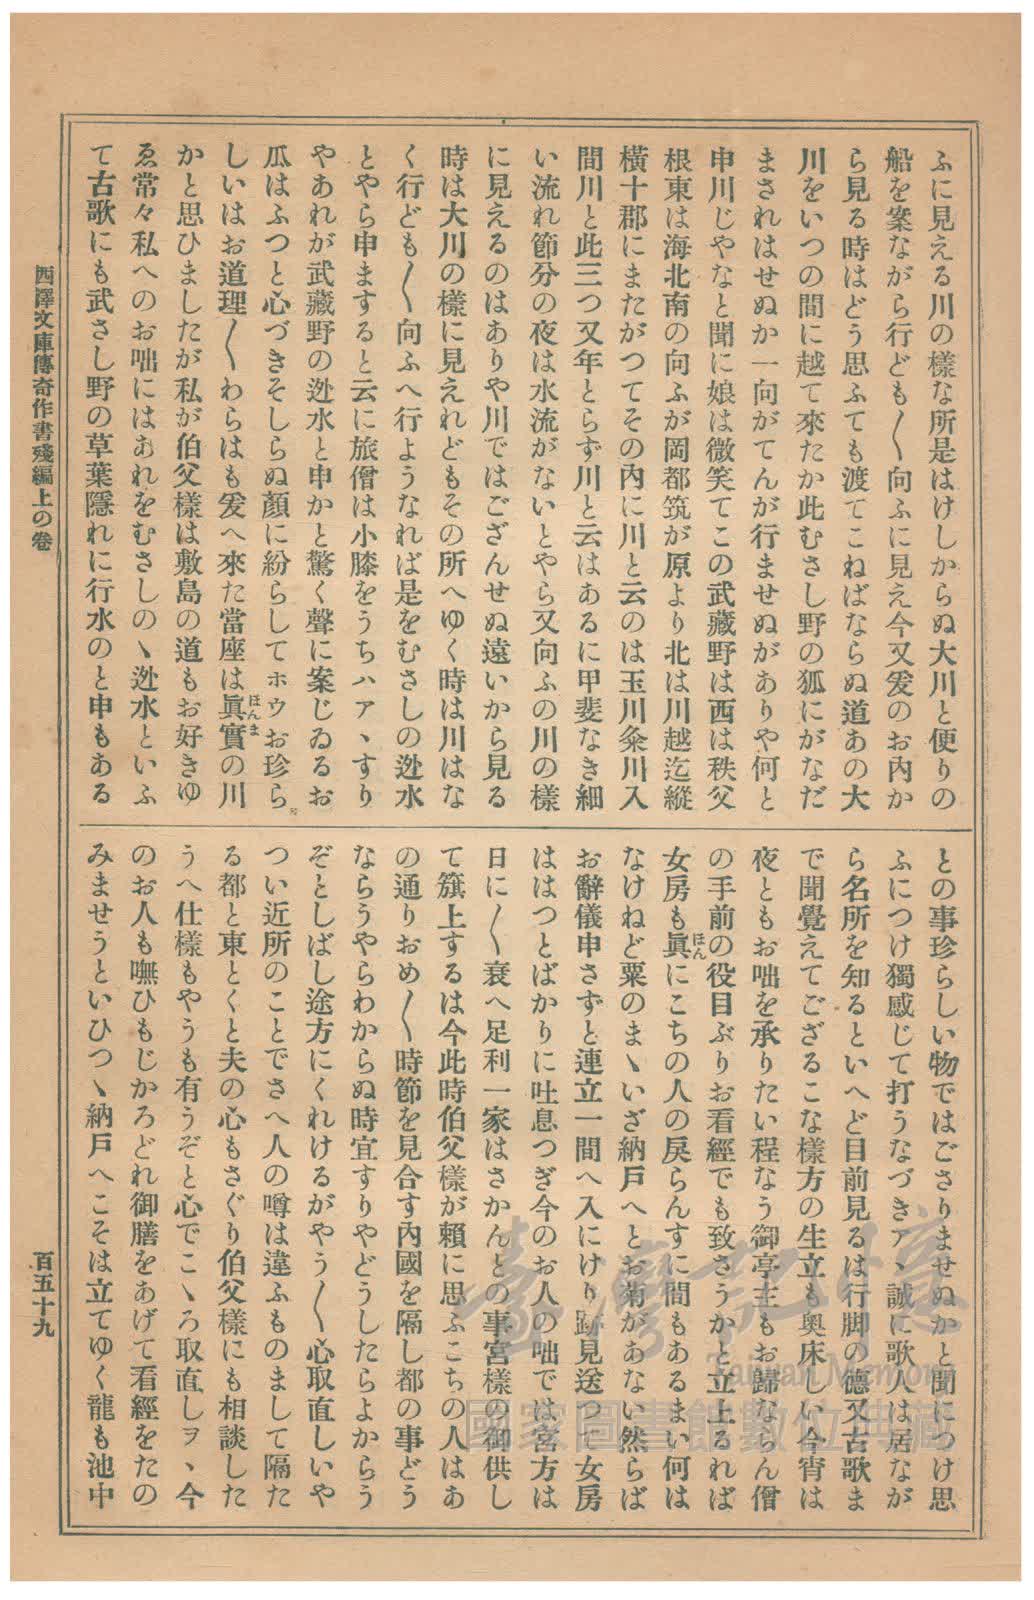 ふに見える川の樣な所是はけしからぬ大川と便りの
船を案ながら行ども〳〵向ふに見え今又爰のお內か
ら見る時はどう思ふても渡てこねばならぬ道あの大
川をいつの間に越て來たか此むさし野の狐にがなだ
まされはせぬか一向がてんが行ませぬがありや何と
申川じやなと聞に娘は微笑てこの武藏野は西は秩父
根東は海北南の向ふが岡都筑が原より北は川越迄縱
橫十郡にまたがつてその內に川と云のは玉川粂川入
間川と此三つ又年とらず川と云はあるに甲斐なき細
い流れ節分の夜は水流がないとやら又向ふの川の樣
に見えるのはありや川ではござんせぬ遠いから見る
時は大川の樣に見えれどもその所へゆく時は川はな
く行ども〳〵向ふへ行ようなれば是をむさしの迯水
とやら申ますると云に旅僧は小膝をうちハアヽすり
やあれが武藏野の迯水と申かと驚く聲に案じゐるお
瓜はふつと心づきそしらぬ顏に紛らしてホウお珍ら
しいはお道理〳〵わらはも爰へ來た當座は眞實の川
かと思ひましたが私が伯父樣は敷島の道もお好きゆ
ゑ常々私へのお咄にはあれをむさしのヽ迯水といふ
て古歌にも武さし野の草葉隱れに行水のと申もある
との事珍らしい物ではござりませぬかと聞につけ思
ふにつけ獨感じて打うなづきアヽ誠に歌人は居なが
ら名所を知るといへど目前見るは行脚の德又古歌ま
で聞覺えてござるこな樣方の生立も奧床しい今宵は
夜ともお咄を承りたい程なう御亭主もお歸ならん僧
の手前の役目ぶりお看經でも致さうかと立上るれば
女房も眞にこちの人の戾らんすに間もあるまい何は
なけねど粟のまヽいざ納戶へとお菊があない然らば
お辭儀申さずと連立一間へ入にけり跡見送つて女房
ははつとばかりに吐息つぎ今のお人の咄では宮方は
日に〳〵衰へ足利一家はさかんとの事宮樣の御供し
て籏上するは今此時伯父樣が賴に思ふこちの人はあ
の通りおめ〳〵時節を見合す內國を隔し都の事どう
ならうやらわからぬ時宜すりやどうしたらよからう
ぞとしばし途方にくれけるがやう〳〵心取直しいや
つい近所のことでさへ人の噂は違ふものまして隔た
る都と東とくと夫の心もさぐり伯父樣にも相談した
うへ仕樣もやうも有うぞと心でこヽろ取直しヲヽ今
のお人も嘸ひもじかろどれ御膳をあげて看經をたの
みませうといひつヽ納戶へこそは立てゆく龍も池中
ほんま
ほん
西澤文庫傳奇作書殘編上の卷
百五十九
臺灣記憶
Taiwan Memory
國家圖書館數位典藏